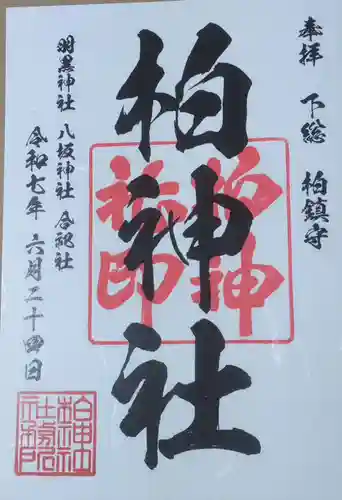 奉拝 下総 柏鎮守
柏神社
羽黒神社 八坂神社 合祀社
令和七年 六月二十四日
柏神社印